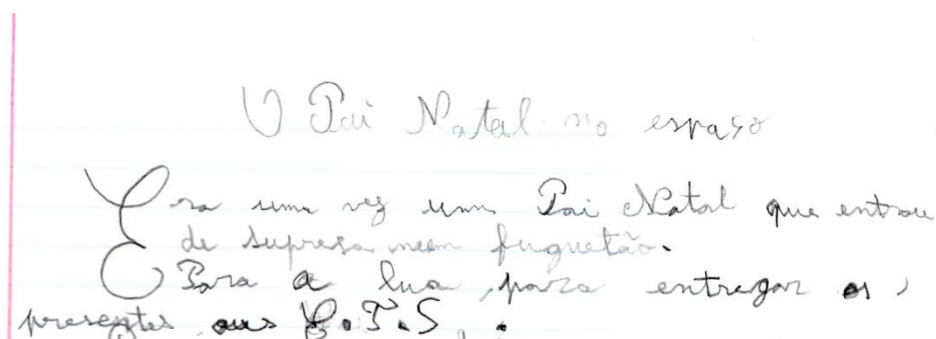 O Pai Natal no espaso
Era uma vez umm Pai Natal que entrou
de supresa num fuguetão.
Para a lua, para entregar os
presentes aus E.T.S.